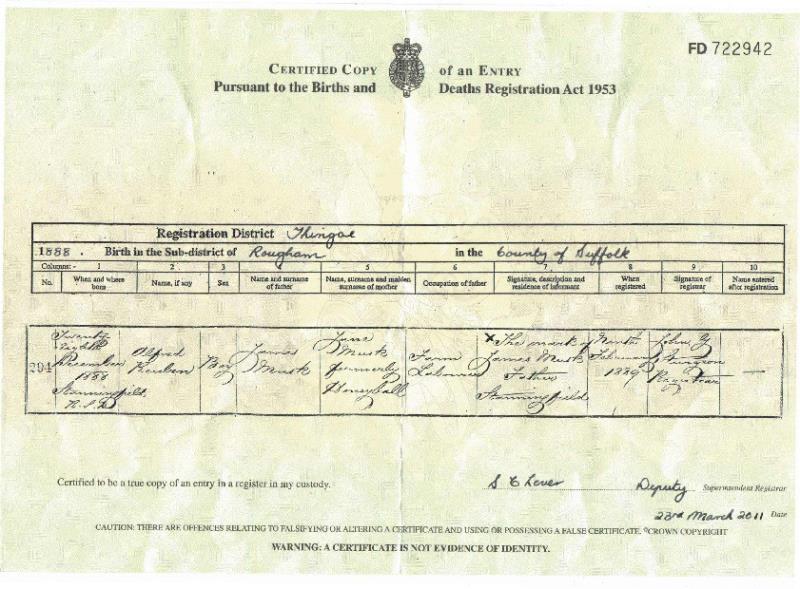 FD 722942
CERTIFIED COPY of an ENTRY
Pursuant to the Births and Deaths Registration Act 1953
Registration District Thingoe
1888. Birth in the Sub-district of Rougham in the County of Suffolk
Columns:- 1 2 3 4 5 6 7 8 9 10
No. When and where born Name, if any Sex Name and surname of father Name, surname and maiden surname of mother Occupation of father Signature, description and residence of informant When registered Signature of registrar Name entered after registration
294 Twenty Eighth December 1888 Stanningfield R.S.D. Alfred Reuben Boy James Musk Jane Musk formerly Honeyball Farm Labourer X The mark of James Musk Father Stanningfield Ninth February 1889 John G Registrar —
Certified to be a true copy of an entry in a register in my custody.
S C Lover Deputy Superintendent Registrar
23rd March 2011 Date
CAUTION: THERE ARE OFFENCES RELATING TO FALSIFYING OR ALTERING A CERTIFICATE AND USING OR POSSESSING A FALSE CERTIFICATE. ©CROWN COPYRIGHT
WARNING: A CERTIFICATE IS NOT EVIDENCE OF IDENTITY.